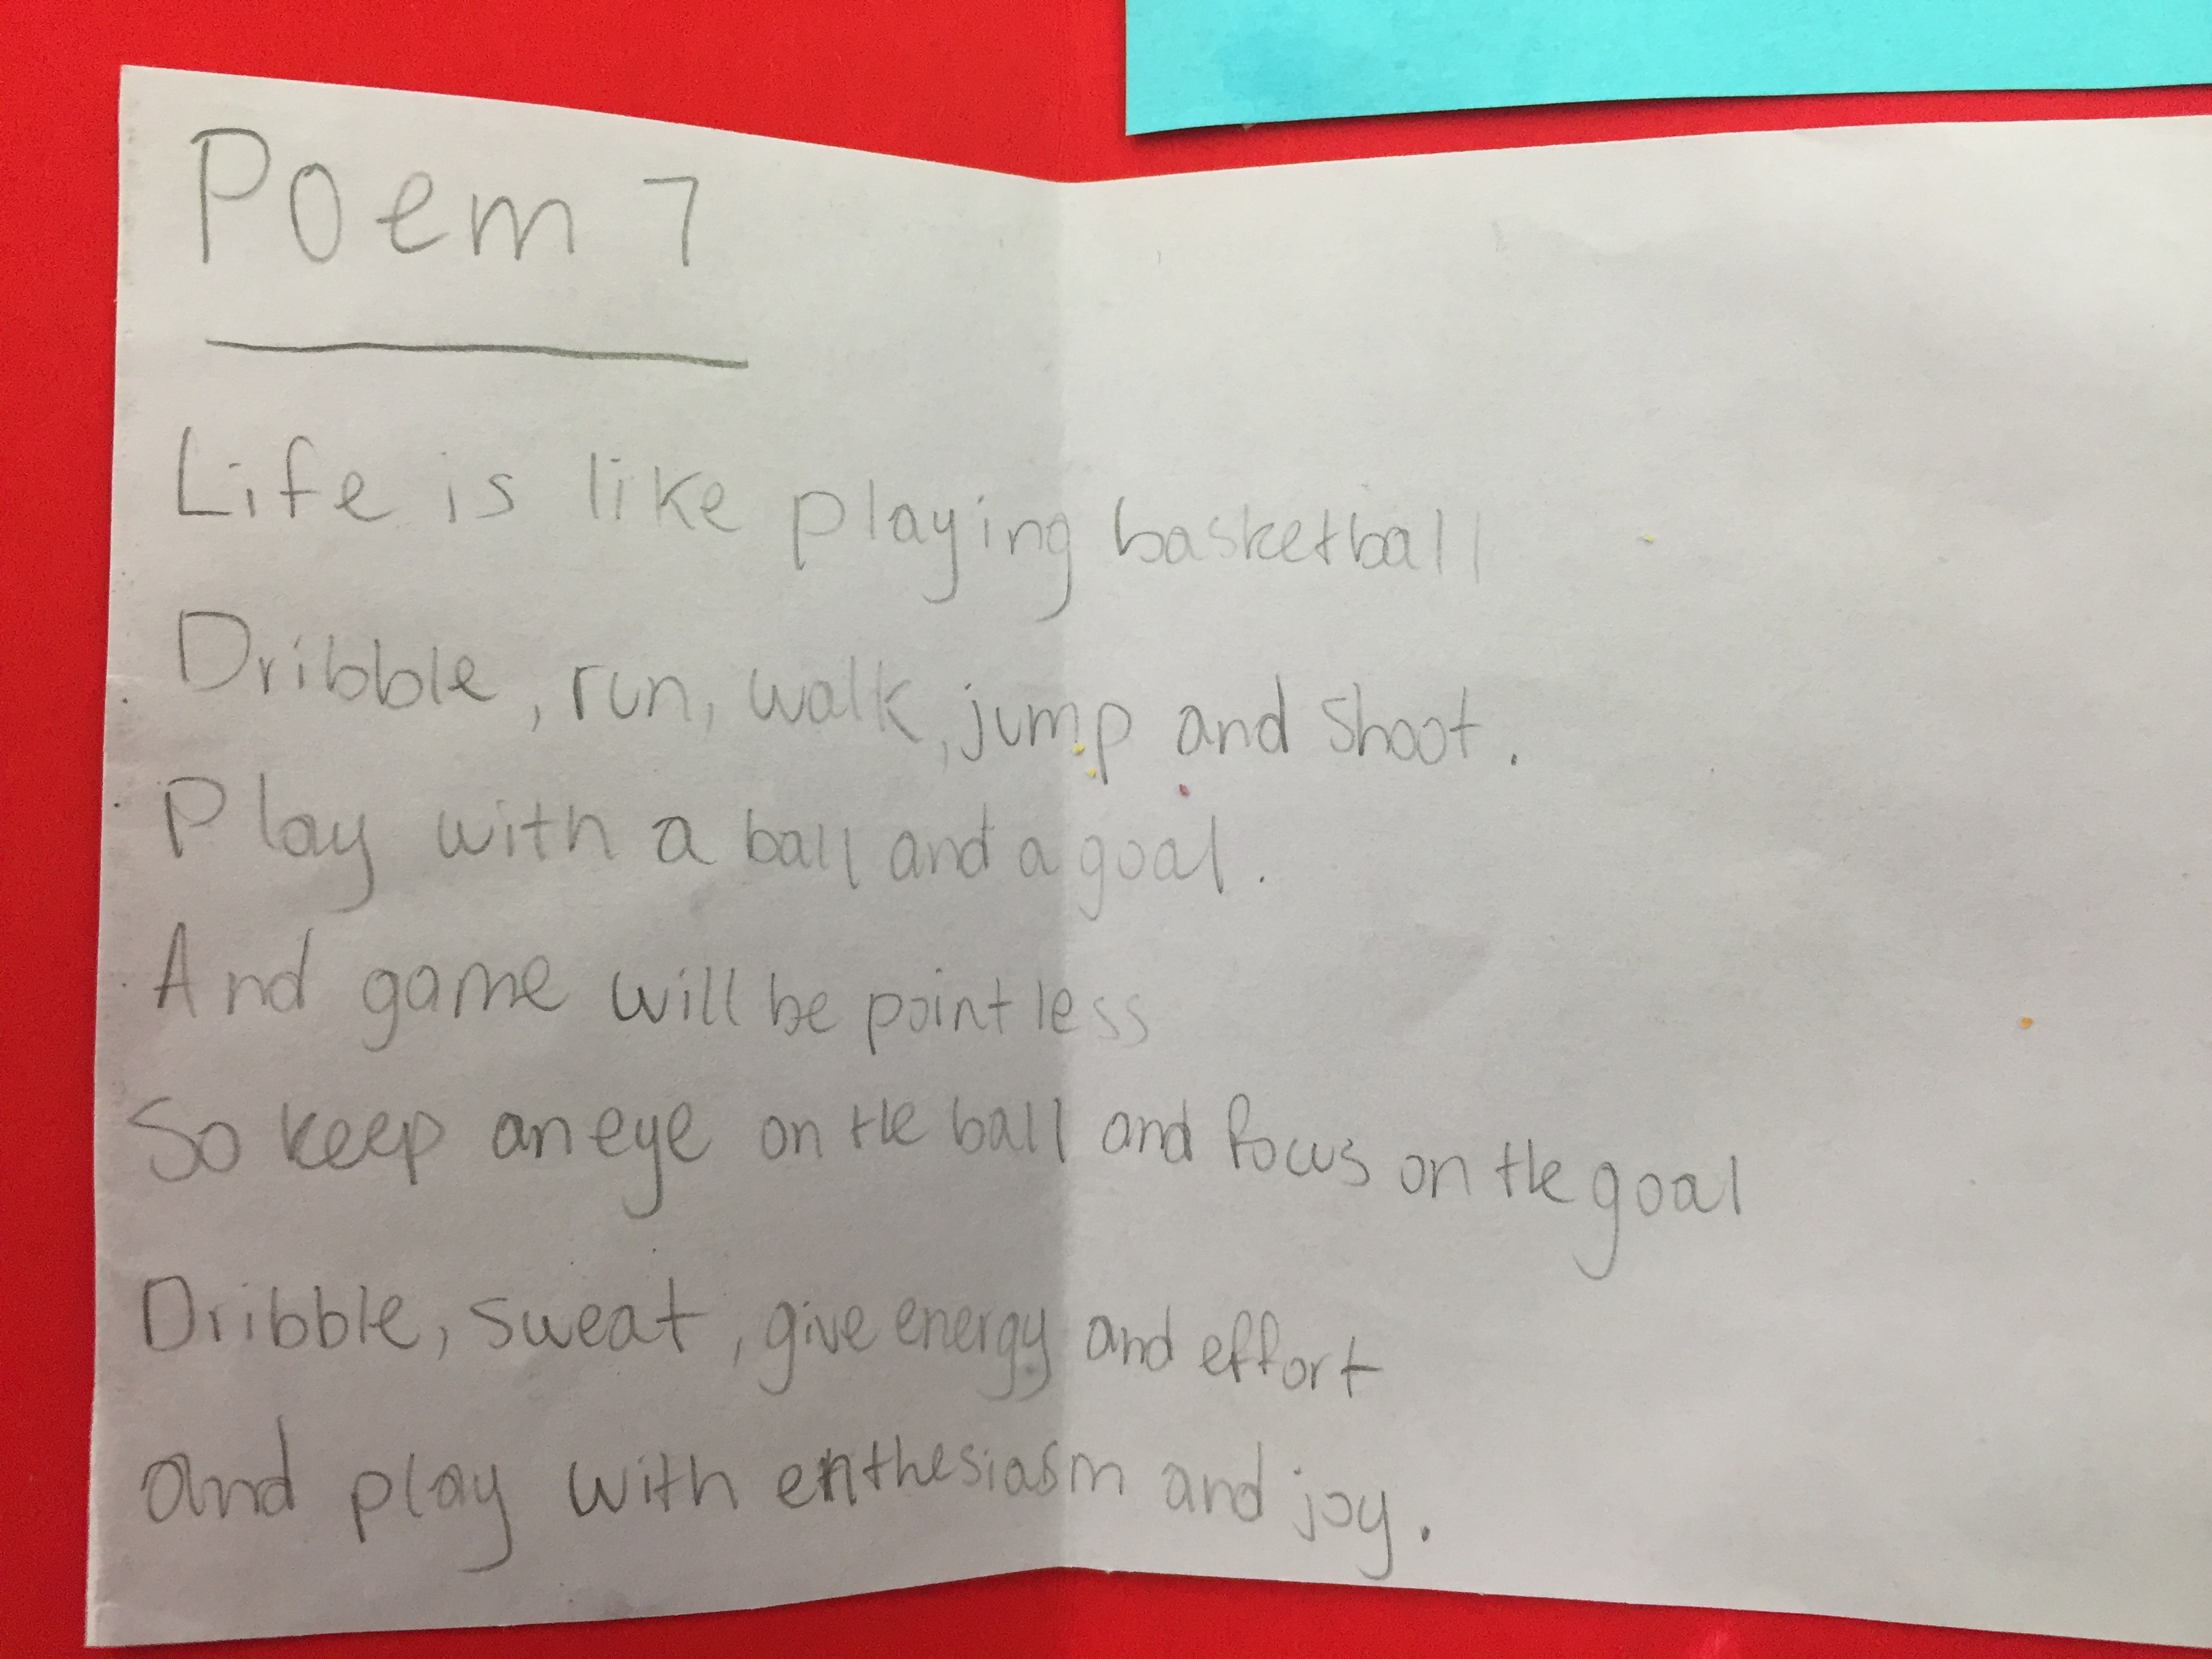 Poem 7
Life is like playing basketball
Dribble, run, walk, jump and shoot.
Play with a ball and a goal.
And game will be pointless
So keep an eye on the ball and focus on the goal
Dribble, sweat, give energy and effort
and play with enthesiasm and joy.